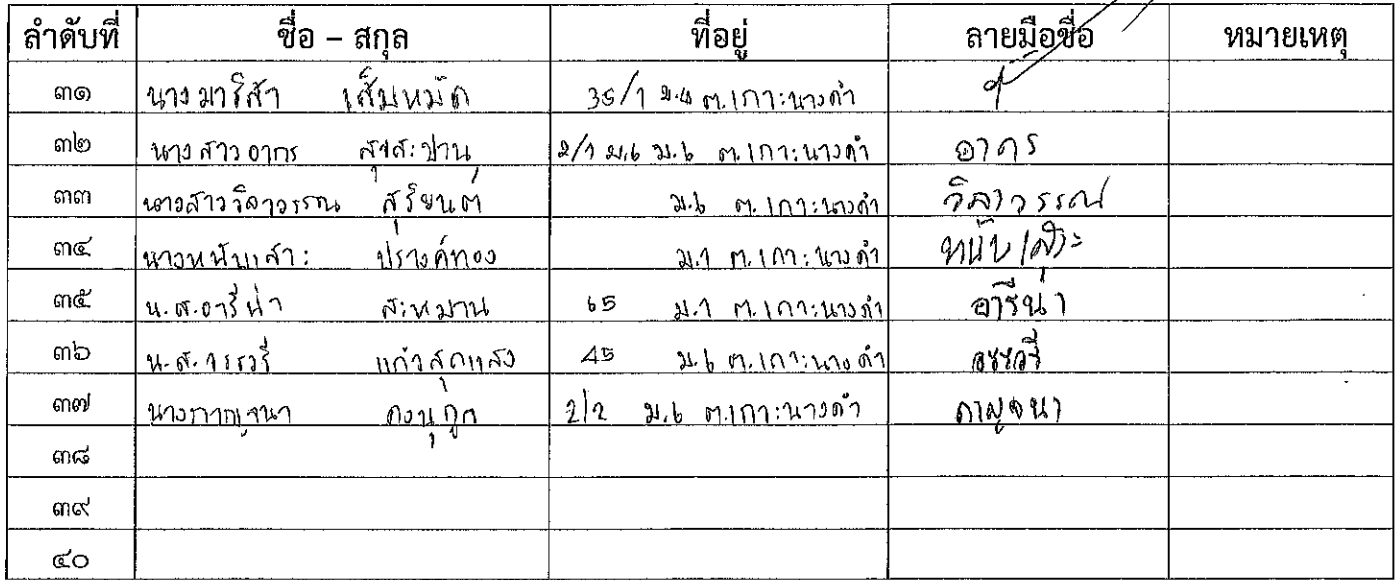 ลำดับที่ ชื่อ – สกุล ที่อยู่ ลายมือชื่อ หมายเหตุ
๓๑ นางมารีสา เส็นหมัด 35/1 ม.4 ต.เกาะนางคำ
๓๒ นางสาวอากร สุขสะปาน 2/1 ม.6 ม.6 ต.เกาะนางคำ อากร
๓๓ นางสาววิลาวรรณ สุริยันต์ ม.6 ต.เกาะนางคำ วิลาวรรณ
๓๔ นางหนับเสาะ ปรางค์ทอง ม.1 ต.เกาะนางคำ หนับเสาะ
๓๕ น.ส.อารีน่า สะหมาน 65 ม.1 ต.เกาะนางคำ อารีน่า
๓๖ น.ส. แก้วสุกแสง 45 ม.6 ต.เกาะนางคำ
๓๗ นางกาญจนา คงนุกูล 2/2 ม.6 ต.เกาะนางคำ กาญจนา
๓๘
๓๙
๔๐